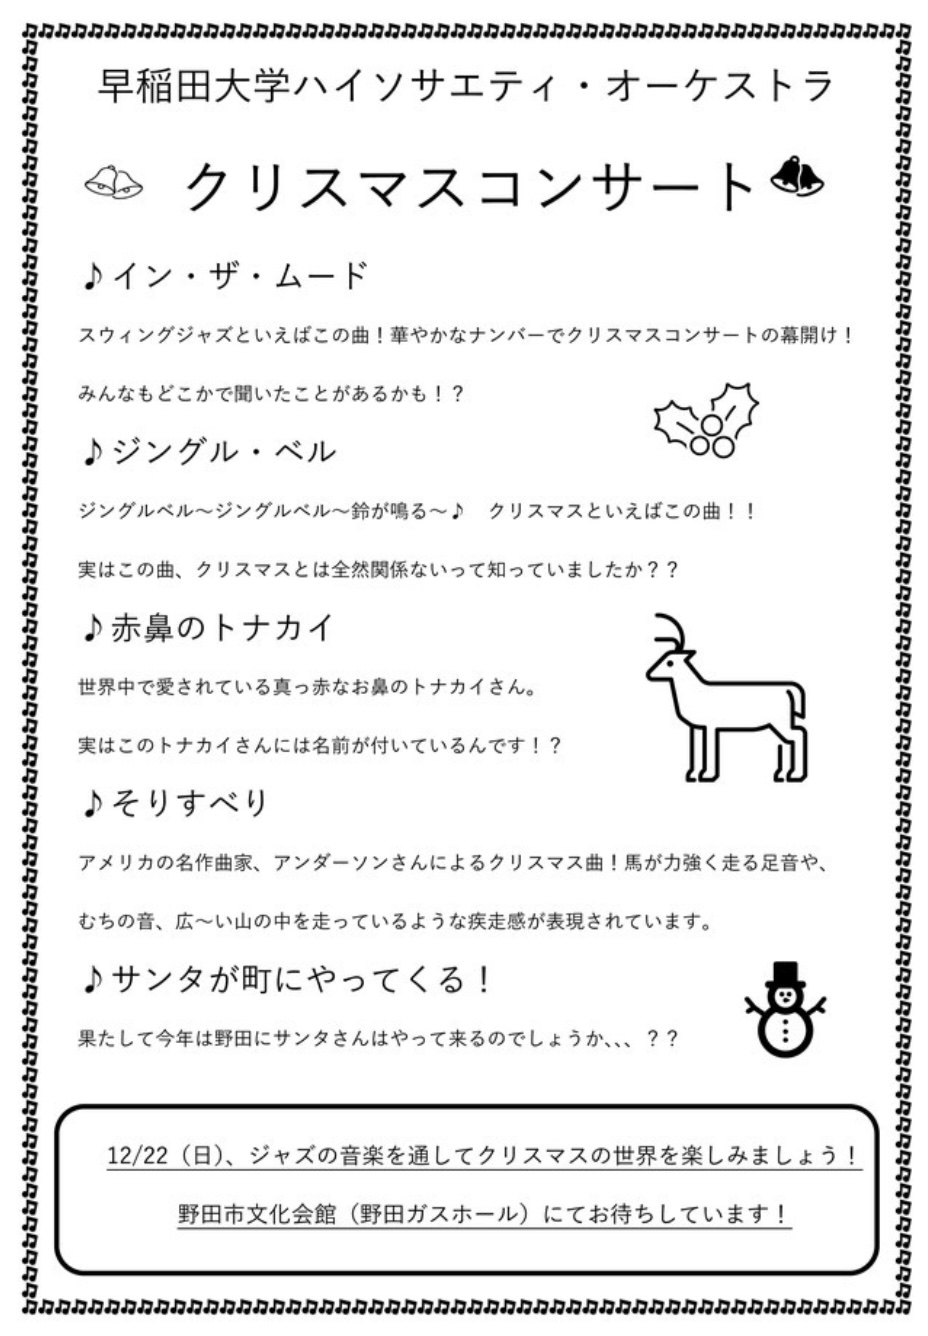 早稲田大学ハイソサエティ・オーケストラ
クリスマスコンサート
♪イン・ザ・ムード
スウィングジャズといえばこの曲！華やかなナンバーでクリスマスコンサートの幕開け！
みんなもどこかで聞いたことがあるかも！？
♪ジングル・ベル
ジングルベル～ジングルベル～鈴が鳴る～♪　クリスマスといえばこの曲！！
実はこの曲、クリスマスとは全然関係ないって知っていましたか？？
♪赤鼻のトナカイ
世界中で愛されている真っ赤なお鼻のトナカイさん。
実はこのトナカイさんには名前が付いているんです！？
♪そりすべり
アメリカの名作曲家、アンダーソンさんによるクリスマス曲！馬が力強く走る足音や、
むちの音、広～い山の中を走っているような疾走感が表現されています。
♪サンタが町にやってくる！
果たして今年は野田にサンタさんはやって来るのでしょうか、、、？？
12/22（日）、ジャズの音楽を通してクリスマスの世界を楽しみましょう！
野田市文化会館（野田ガスホール）にてお待ちしています！